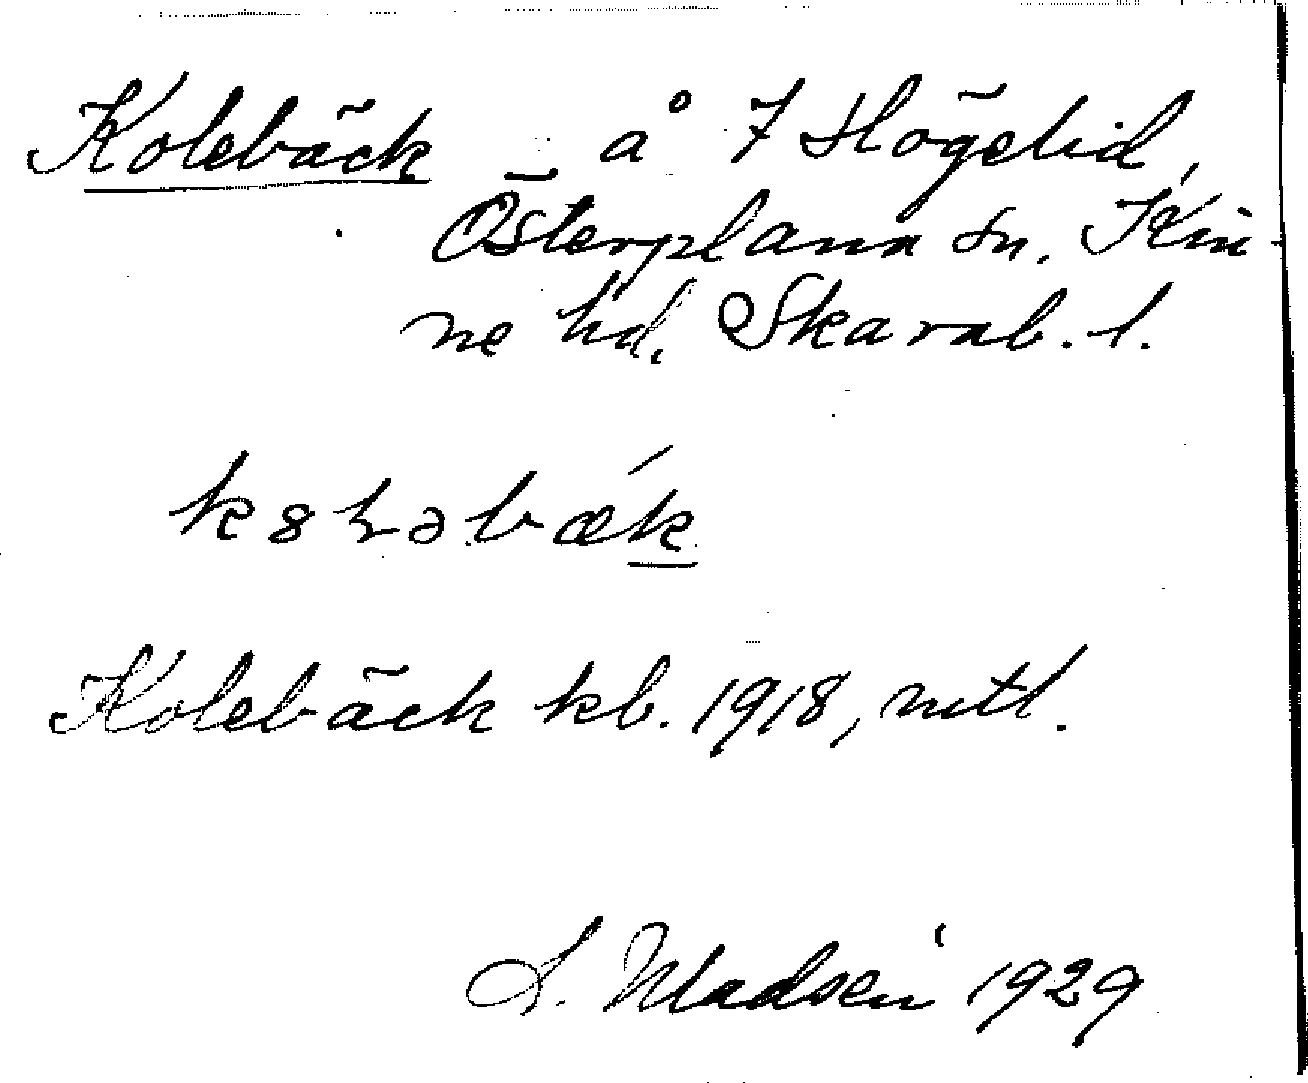 Kolebäck å 7 Högelid,
Österplana sn. Kin-
ne hd. Skarab. l.
k8ɫəbæ´k
Kolebäck kb. 1918, mtl.
S. Madsén 1929